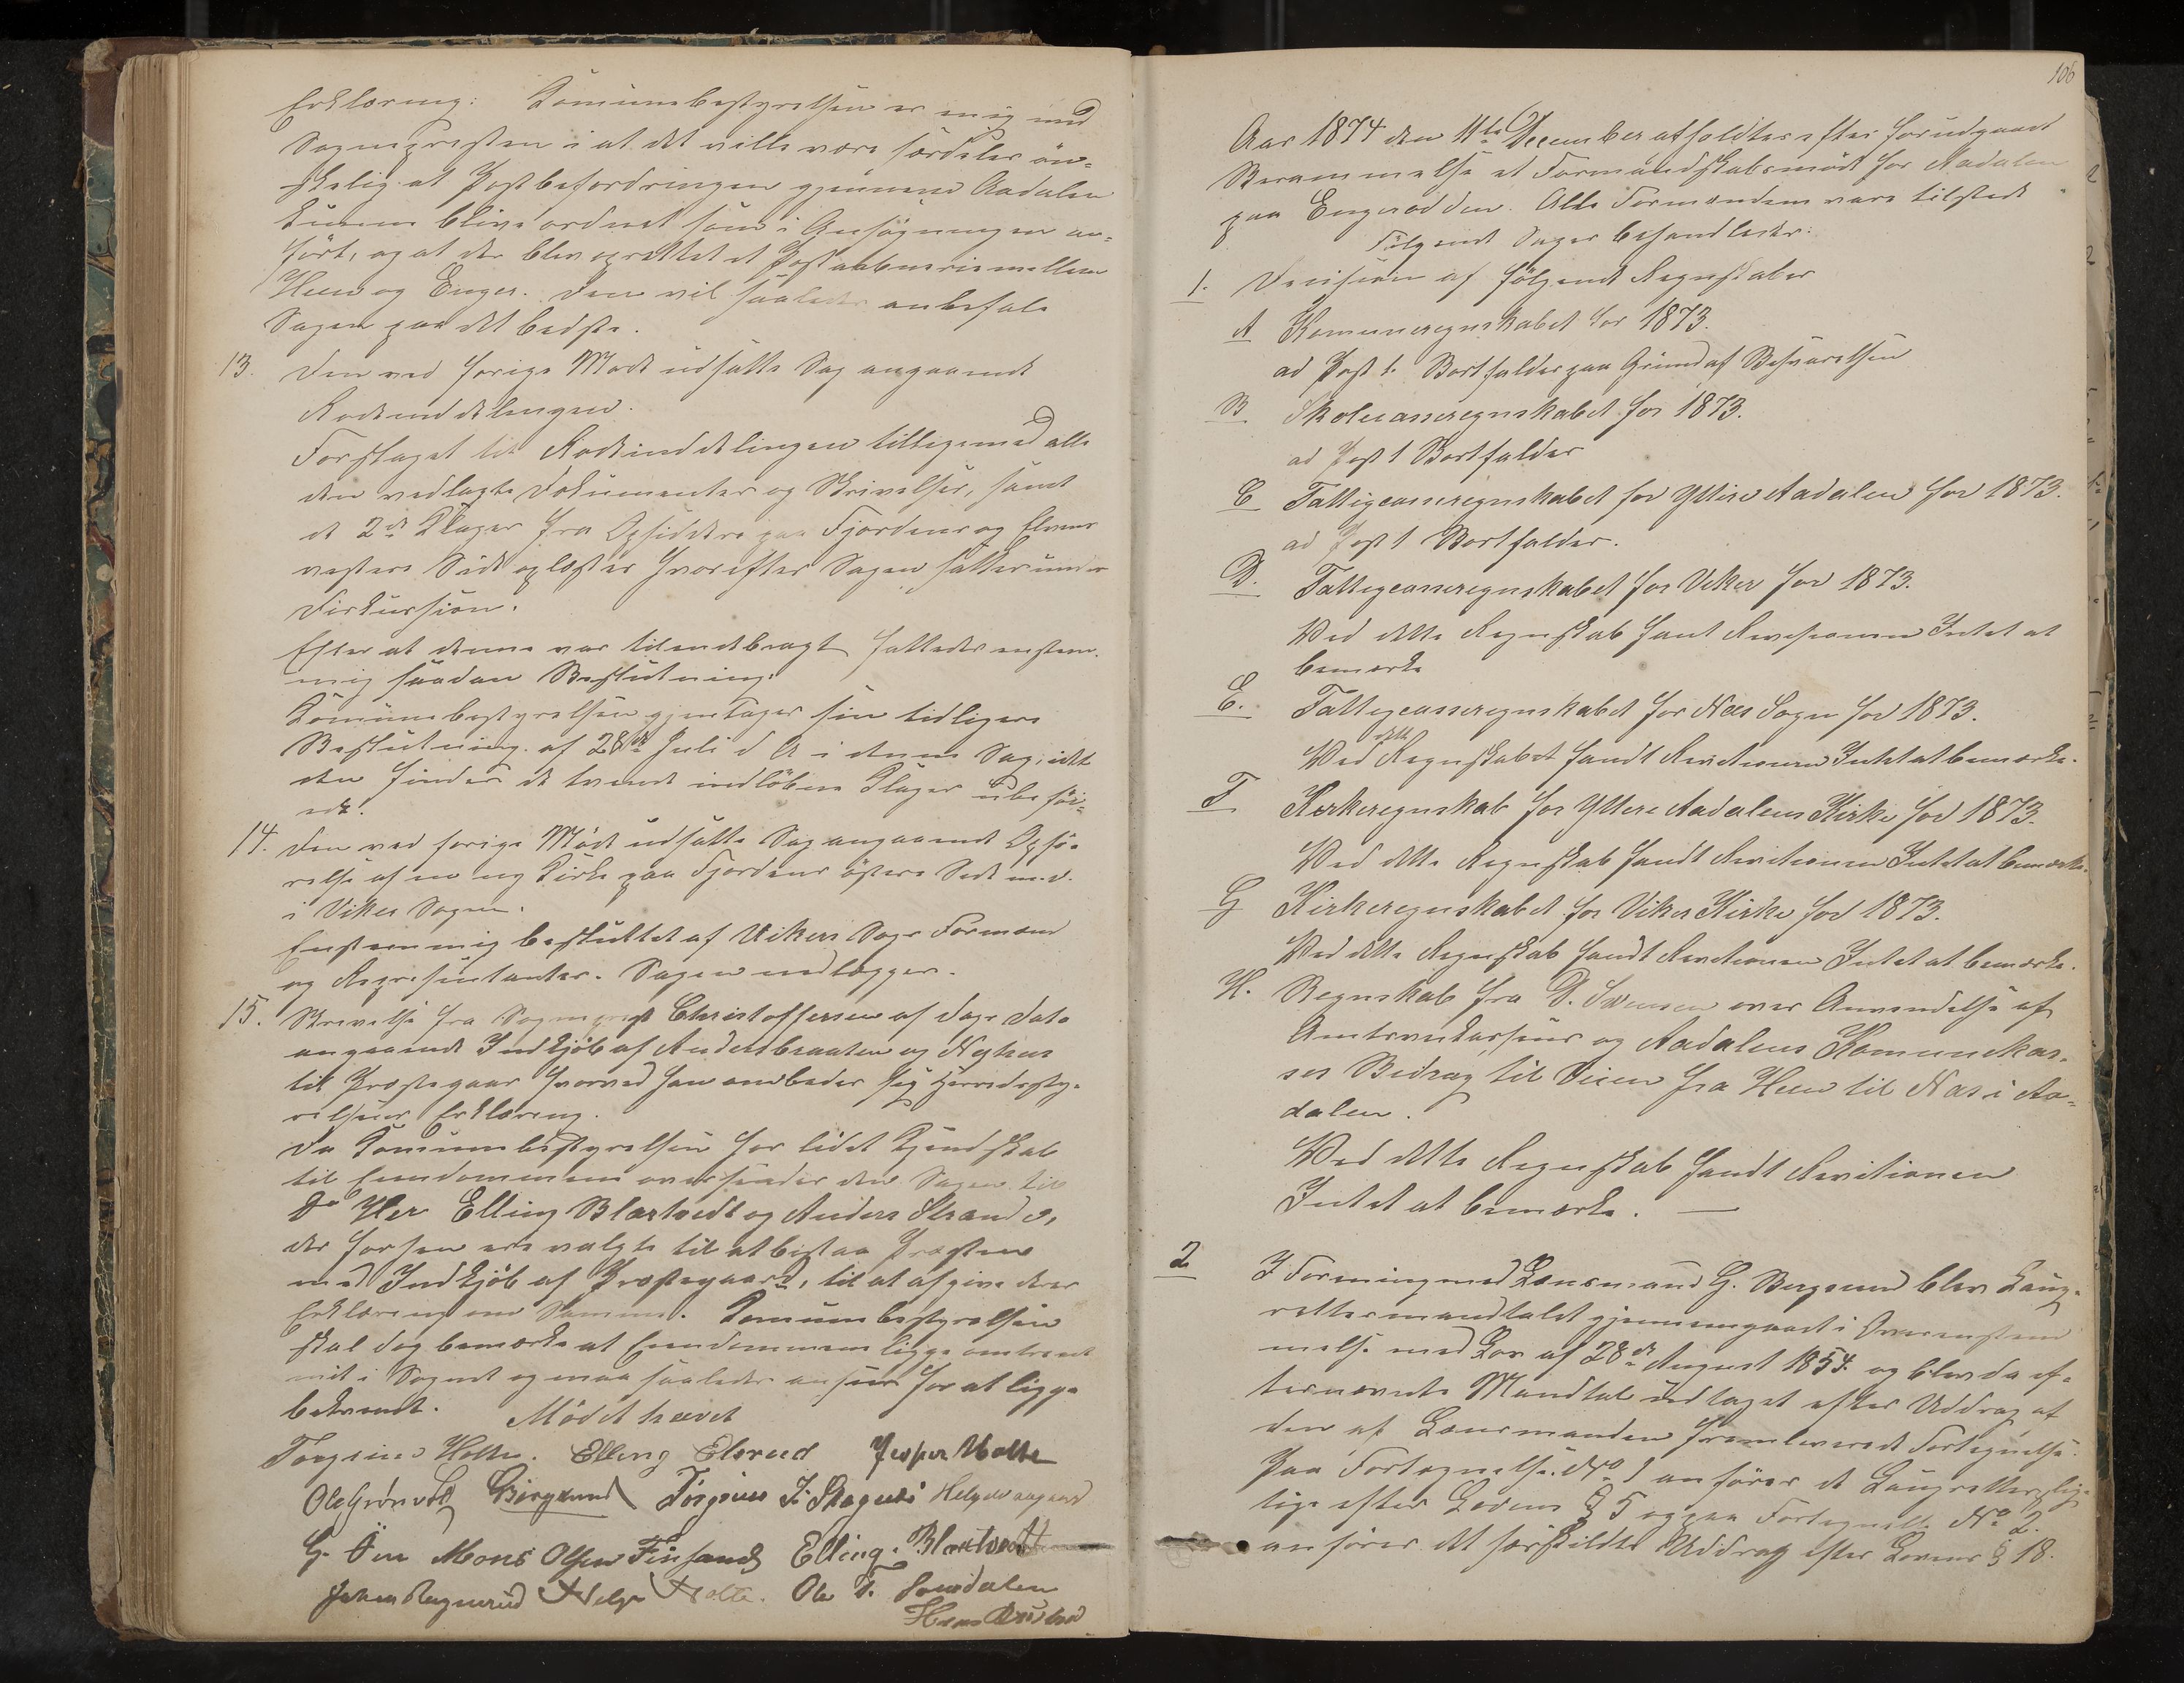 Erklæring: Komunebestyrelsen er enig med
Sognepresten i at det ville være særdeles øn-
skelig at Postbefordringen gjennem Aadalen
kunne blive ordnet som i Ansøgningen an-
ført, og at der blev oprettet et Postaabneri mellem
Heen og Enger. Den vil saaledes anbefale
Sagen paa det bedste.
13. Den ved forige Møde udsatte Sag angaaende
Rodeinddelingen.
Forslaget til Rodeinddelingen tilligemed alle
den vedlagte Dokumenter og Skrivelser, samt
de 2de Klager fra Opsiddere paa Fjordens og Elvens
vestere Side oplæstes hvorefter Sagen sattes under
Diskussion.
Efter at denne var tilendebragt fattedes enstem-
mig saadan Beslutning:
Komunebestyrelsen gjentager sin tidligere
Beslutning af 28de Juli d A i denne Sag, idet
den finder de tvende indløbne Klager ubeføi-
ede.
14. Den ved forige Møde udsatte Sag angaaende Opfø-
relse af en ny Kirke paa Fjordens østere Side m.v.
i Viker Sogn.
Enstemmig besluttet af Vikers Sogs Formænd
og Repræsentanter. Sagen nedlægges.
15. Skrivelse fra Sogneprest Christoffersen af Dags Dato
angaaende Indkjøb af Andersbraaten og Nyhus
til Præstegaar hvorved han ombeder sig Herredssty-
relsens Erklæring.
Da Komunebestyrelsen har lidet Kjendskab
til Eiendommene oversender den Sagen til
Dhr Her Elling Blaktvedt og Anders Strande,
der forhen ere valgte til at bistaa Præsten
med Indkjøb af Præstegaard, til at afgive deres
Erklæring om Samme. Komunebestyrelsen
skal dog bemærke at Eiendommene ligge omtrent
mit i Sognet og maa saaledes ansees for at ligge
bekvemt.
Mødet hævet
Torgeir Holte. Elling Elsrud Jesper Holte
Ole Grønvold Bergsund Torgeir T. Skagnæs Helge
G. Öen Mons Olsen Finsand Elling Blaktvedt
Johan Ragnerud Helge Holte. Ole T. Somdalen
Hans
106
Aar 1874 den 11te December afholdtes efter forudgaaet
Berammelse et Formandskabsmøde for Aadalen
paa Engerodden. Alle Formændene vare tilstede
Følgende Sager behandledes:
1. Decision af følgende Regnskaber
A Komuneregnskabet for 1873.
ad Post 1. Bortfalder paa Grund af Besvarelsen
B Skolecasseregnskabet for 1873.
ad Post 1 Bortfalder
C Fattigcasseregnskabet for Yttre Aadalen for 1873.
ad Post 1 Bortfalder.
D. Fattigcasseregnskabet for Viker for 1873.
Ved dette Regnskab fant Revisionen Intet at
bemærke
E. Fattigcasseregnskabet for Næs Sogn for 1873.
Ved dette Regnskabet fandt Revitionen Intet at bemærke.
F Kirkeregnskab for Yttere Aadalens Kirke for 1873.
Ved dette Regnskab fandt Revitionen Intet at bemærke.
G Kirkeregnskabet for Viker Kirke for 1873.
Ved dette Regnskab fandt Revitionen Intet at bemærke.
H. Regnskab fra D. over Anvendelse af
Amtsveikassens og Aadalens Komunekas-
ses Bedrag til Veien fra Heen til Næs i Aa-
dalen.
Ved dette Regnskab fandt Revitionen
Intet at bemærke. —
2 I Forening med Lensmand G. Bergsund blev Laug-
rettesmandtalet gjennemgaaet i Overenstem
melse med Lov af 28de August 1854. og blev da ef-
ternævnte Mandtal indtaget efter Uddrag af
den af Lensmanden fremleverede Fortegnelse.
Paa Fortegnelse No 1 anføres de Laugrettespligt-
tige efter Lovens § 5 og paa Fortegnelse No 2.
anføres det særskildte Uddrag efter Lovens § 18.